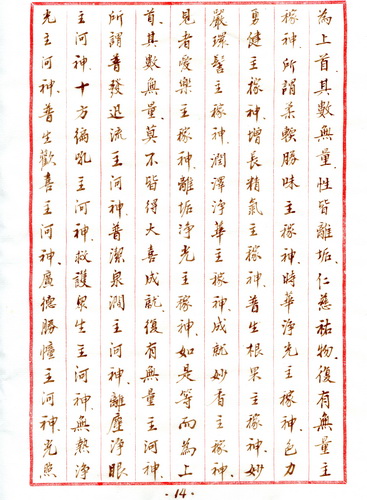 為上首其數無量性皆離垢、仁慈祐物、復有無量主
稼神、所謂柔軟勝味主稼神、時華淨光主稼神、色力
勇健主稼神、增長精氣主稼神、普生根果主稼神、妙
嚴環髻主稼神、潤澤淨華主稼神、成就妙香主稼神、
見者愛樂主稼神、離垢淨光主稼神、如是等而為上
首、其數無量、莫不皆得大喜成就、復有無量主河神、
所謂普發迅流主河神、普潔泉澗主河神、離塵淨眼
主河神、十方徧吼主河神、救護衆生主河神、無熱淨
光主河神、普生歡喜主河神、廣德勝幢主河神、光照
·14·